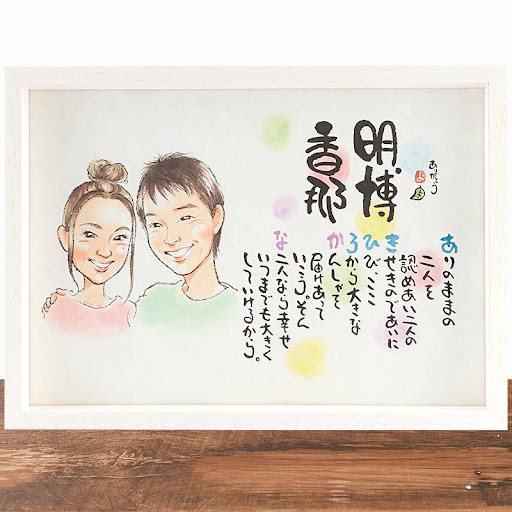 明博
香那
ありのままの
二人を
認めあい二人の
きせきのであいに
ひびここ
ろから大きな
かんしゃを
届けあって
いこう。そん
な二人なら幸せ
いつまでも大きく
していけるから。